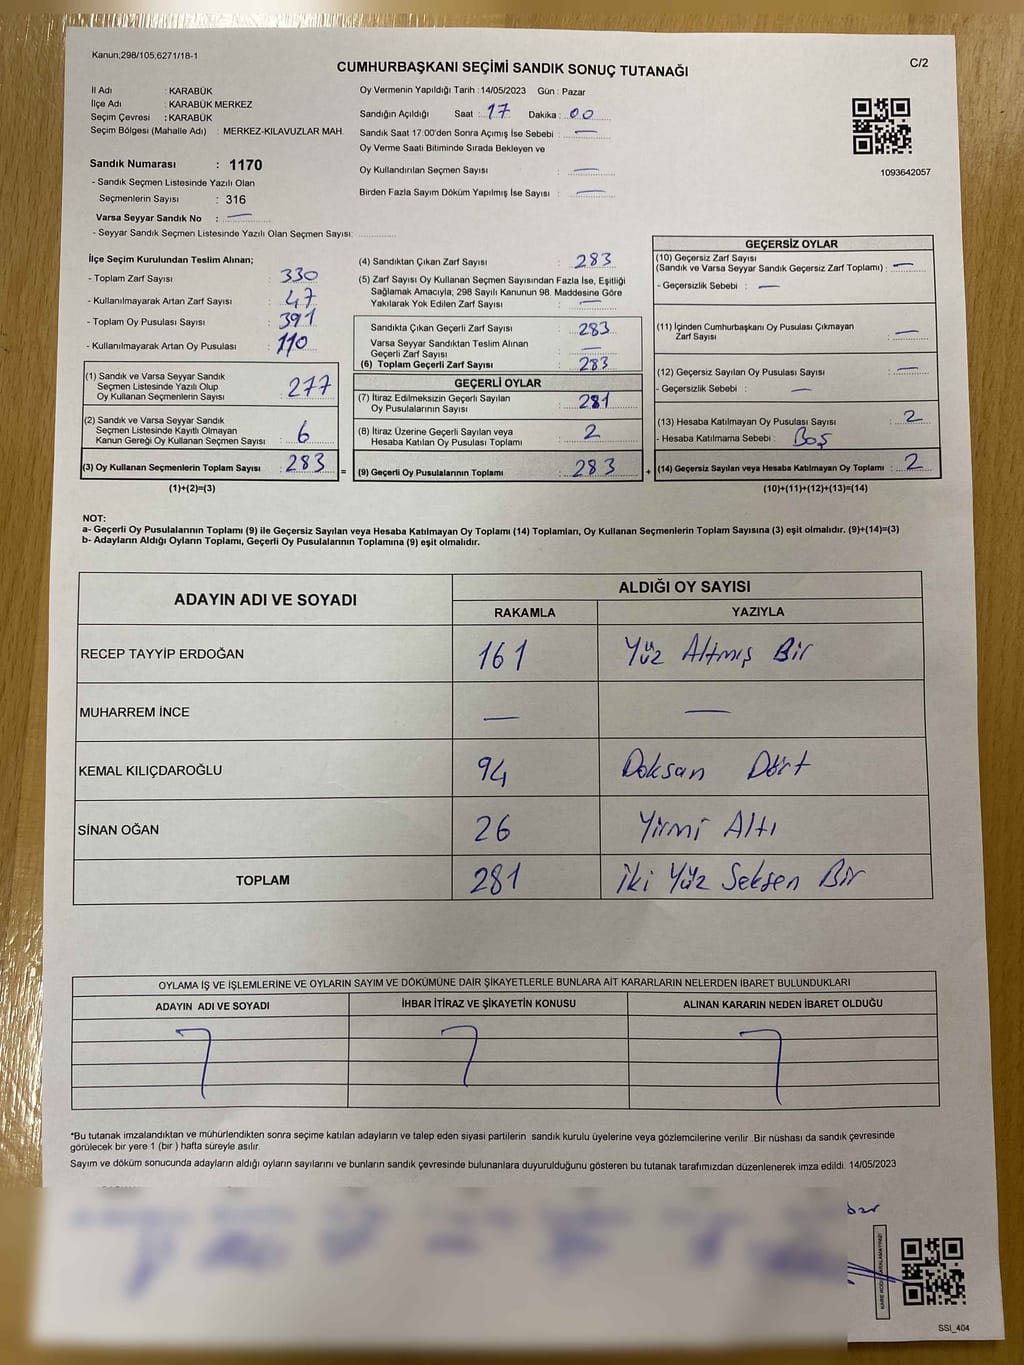 Kanun;298/105,6271/18-1
CUMHURBAŞKANI SEÇİMİ SANDIK SONUÇ TUTANAĞI
C/2
İl Adı : KARABÜK
İlçe Adı : KARABÜK MERKEZ
Seçim Çevresi : KARABÜK
Seçim Bölgesi (Mahalle Adı) : MERKEZ-KILAVUZLAR MAH.
Sandık Numarası : 1170
- Sandık Seçmen Listesinde Yazılı Olan
Seçmenlerin Sayısı : 316
Varsa Seyyar Sandık No : —
- Seyyar Sandık Seçmen Listesinde Yazılı Olan Seçmen Sayısı:
Oy Vermenin Yapıldığı Tarih : 14/05/2023 Gün : Pazar
Sandığın Açıldığı Saat : 17 Dakika : 00
Sandık Saat 17:00'den Sonra Açımış İse Sebebi : —
Oy Verme Saati Bitiminde Sırada Bekleyen ve
Oy Kullandırılan Seçmen Sayısı : —
Birden Fazla Sayım Döküm Yapılmış İse Sayısı : —
1093642057
İlçe Seçim Kurulundan Teslim Alınan;
- Toplam Zarf Sayısı : 330
- Kullanılmayarak Artan Zarf Sayısı : 47
- Toplam Oy Pusulası Sayısı : 391
- Kullanılmayarak Artan Oy Pusulası : 110
(1) Sandık ve Varsa Seyyar Sandık
Seçmen Listesinde Yazılı Olup
Oy Kullanan Seçmenlerin Sayısı : 277
(2) Sandık ve Varsa Seyyar Sandık
Seçmen Listesinde Kayıtlı Olmayan
Kanun Gereği Oy Kullanan Seçmen Sayısı : 6
(3) Oy Kullanan Seçmenlerin Toplam Sayısı : 283
(1)+(2)=(3)
(4) Sandıktan Çıkan Zarf Sayısı : 283
(5) Zarf Sayısı Oy Kullanan Seçmen Sayısından Fazla İse, Eşitliği
Sağlamak Amacıyla; 298 Sayılı Kanunun 98. Maddesine Göre
Yakılarak Yok Edilen Zarf Sayısı : —
Sandıkta Çıkan Geçerli Zarf Sayısı : 283
Varsa Seyyar Sandıktan Teslim Alınan
Geçerli Zarf Sayısı : —
(6) Toplam Geçerli Zarf Sayısı : 283
GEÇERLİ OYLAR
(7) İtiraz Edilmeksizin Geçerli Sayılan
Oy Pusulalarının Sayısı : 281
(8) İtiraz Üzerine Geçerli Sayılan veya
Hesaba Katılan Oy Pusulası Toplamı : 2
= (9) Geçerli Oy Pusulalarının Toplamı : 283
GEÇERSİZ OYLAR
(10) Geçersiz Zarf Sayısı
(Sandık ve Varsa Seyyar Sandık Geçersiz Zarf Toplamı) : —
- Geçersizlik Sebebi : —
(11) İçinden Cumhurbaşkanı Oy Pusulası Çıkmayan
Zarf Sayısı : —
(12) Geçersiz Sayılan Oy Pusulası Sayısı : —
- Geçersizlik Sebebi : —
(13) Hesaba Katılmayan Oy Pusulası Sayısı : 2
- Hesaba Katılmama Sebebi : Boş
+ (14) Geçersiz Sayılan veya Hesaba Katılmayan Oy Toplamı : 2
(10)+(11)+(12)+(13)=(14)
NOT:
a- Geçerli Oy Pusulalarının Toplamı (9) ile Geçersiz Sayılan veya Hesaba Katılmayan Oy Toplamı (14) Toplamları, Oy Kullanan Seçmenlerin Toplam Sayısına (3) eşit olmalıdır. (9)+(14)=(3)
b- Adayların Aldığı Oyların Toplamı, Geçerli Oy Pusulalarının Toplamına (9) eşit olmalıdır.
ADAYIN ADI VE SOYADI
ALDIĞI OY SAYISI
RAKAMLA YAZIYLA
RECEP TAYYİP ERDOĞAN 161 Yüz Altmış Bir
MUHARREM İNCE — —
KEMAL KILIÇDAROĞLU 94 Doksan Dört
SİNAN OĞAN 26 Yirmi Altı
TOPLAM 281 İki Yüz Seksen Bir
OYLAMA İŞ VE İŞLEMLERİNE VE OYLARIN SAYIM VE DÖKÜMÜNE DAİR ŞİKAYETLERLE BUNLARA AİT KARARLARIN NELERDEN İBARET BULUNDUKLARI
ADAYIN ADI VE SOYADI İHBAR İTİRAZ VE ŞİKAYETİN KONUSU ALINAN KARARIN NEDEN İBARET OLDUĞU
*Bu tutanak imzalandıktan ve mühürlendikten sonra seçime katılan adayların ve talep eden siyasi partilerin sandık kurulu üyelerine veya gözlemcilerine verilir .Bir nüshası da sandık çevresinde
görülecek bir yere 1 (bir ) hafta süreyle asılır.
Sayım ve döküm sonucunda adayların aldığı oyların sayılarını ve bunların sandık çevresinde bulunanlara duyurulduğunu gösteren bu tutanak tarafımızdan düzenlenerek imza edildi. 14/05/2023
SSI_404